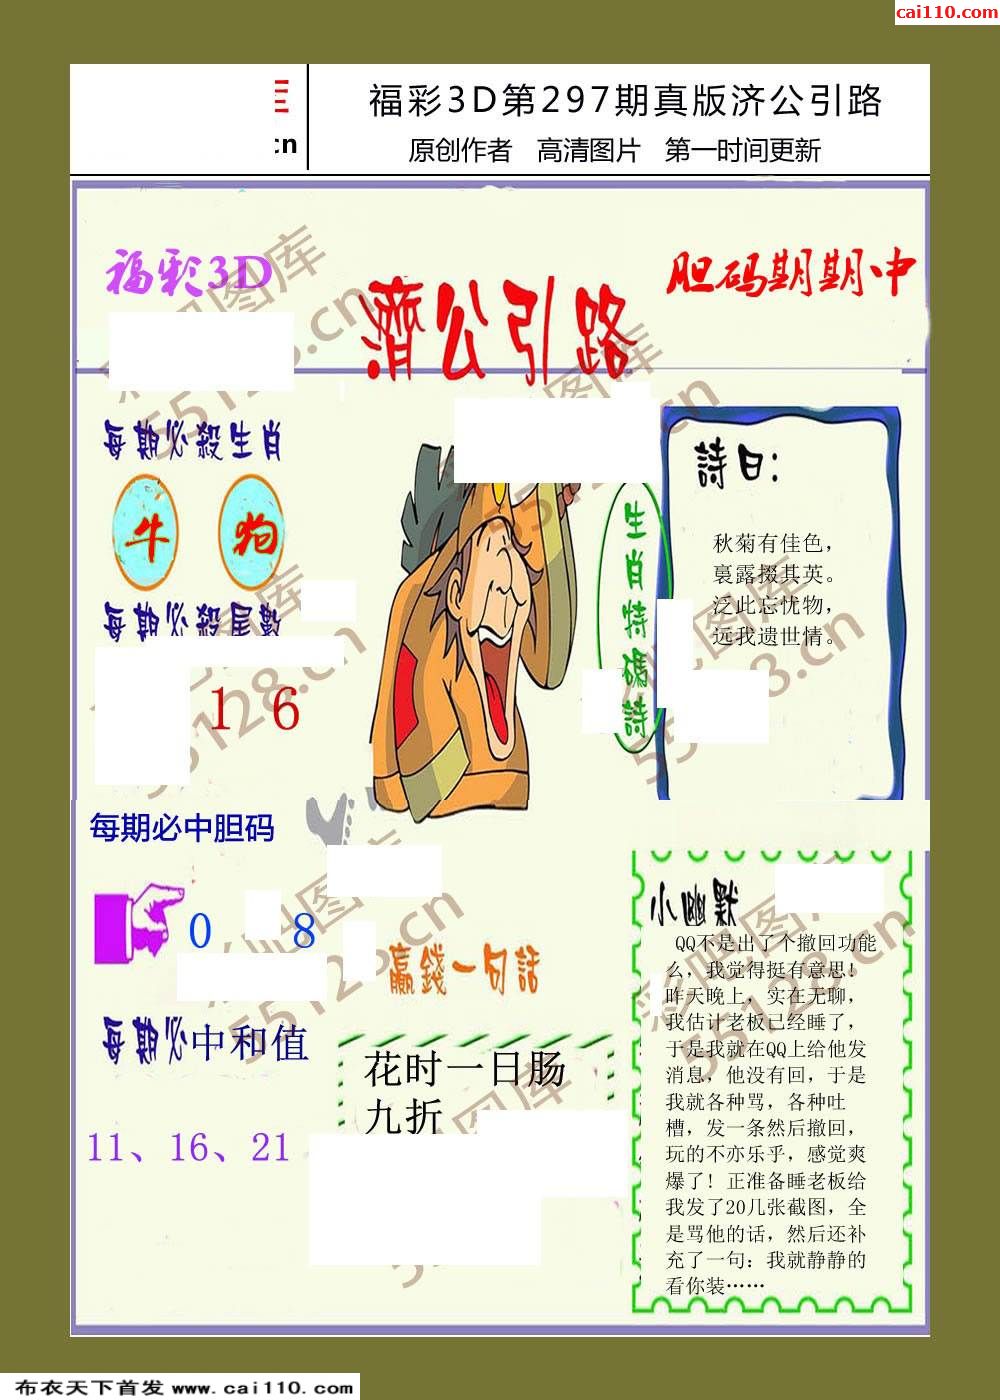 cai110.com
福彩3D第297期真版济公引路
原创作者 高清图片 第一时间更新
福彩3D
濟公引路
胆码期期中
每期必殺生肖
牛 狗
每期必殺尾數
1 6
生肖特碼詩
詩曰：
秋菊有佳色，
裛露掇其英。
泛此忘忧物，
远我遗世情。
每期必中胆码
0 8
每期必中和值
11、16、21
贏錢一句話
花时一日肠
九折
小幽默
QQ不是出了个撤回功能
么，我觉得挺有意思！
昨天晚上，实在无聊，
我估计老板已经睡了，
于是我就在QQ上给他发
消息，他没有回，于是
我就各种骂，各种吐
槽，发一条然后撤回，
玩的不亦乐乎，感觉爽
爆了！正准备睡老板给
我发了20几张截图，全
是骂他的话，然后还补
充了一句：我就静静的
看你装……
布衣天下首发 www.cai110.com